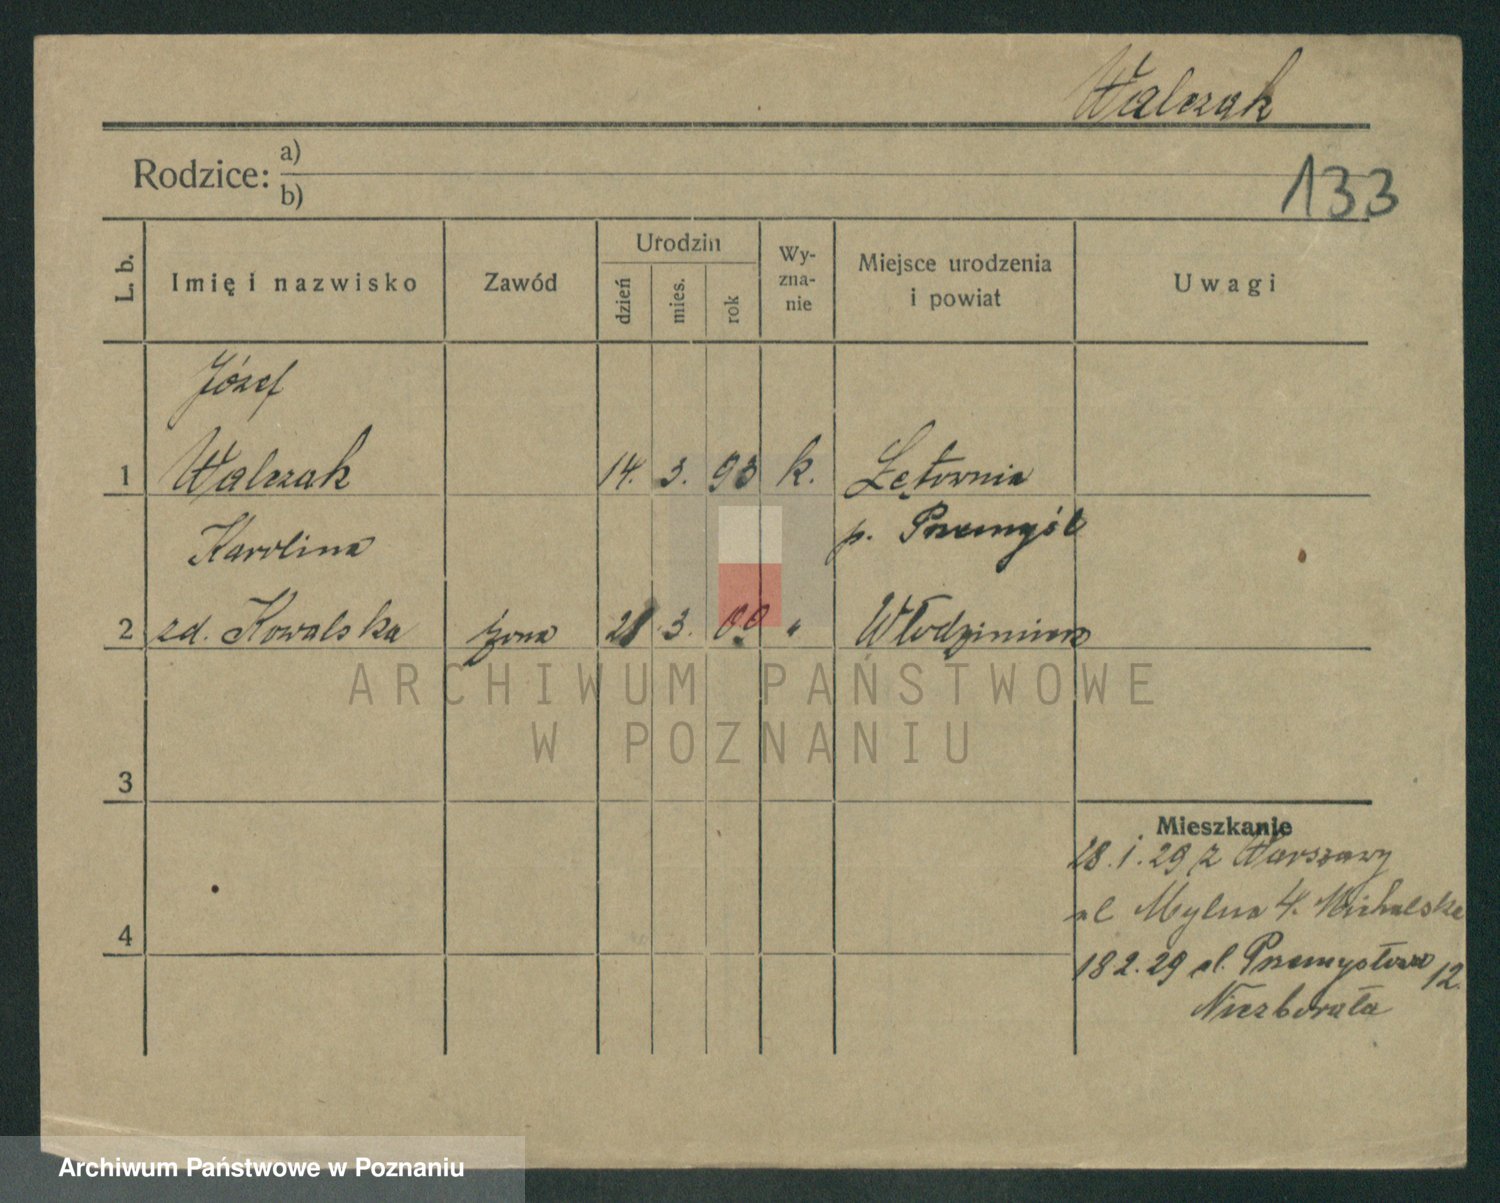 Walczak
Rodzice: a)
b)
133
L. b.
Imię i nazwisko
Zawód
Urodzin
dzień
mies.
rok
Wy-
zna-
nie
Miejsce urodzenia
i powiat
Uwagi
Józef
1 Walczak 14. 3. 93 k. Łętownia
Karolina p. Przemyśl
2 zd. Kowalska żona 28. 3. 00 " Włodzimierz
ARCHIWUM PAŃSTWOWE
W POZNANIU
3
Mieszkanie
28. 1. 29 z Warszawy
ul Mylna 4. Michalska
4
18 2. 29 ul. Przemysłowa 12.
Niezborała
Archiwum Państwowe w Poznaniu